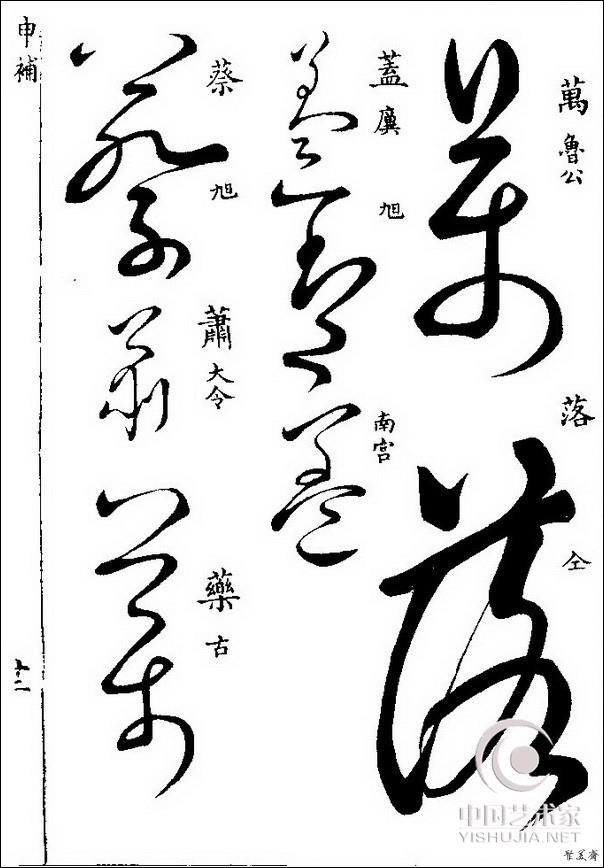 萬 魯公
落 仝
蓋 虞
旭
南宮
蔡 旭
蕭 大令
藥 古
申補
十二
中国艺术家
YISHUJIA.NET